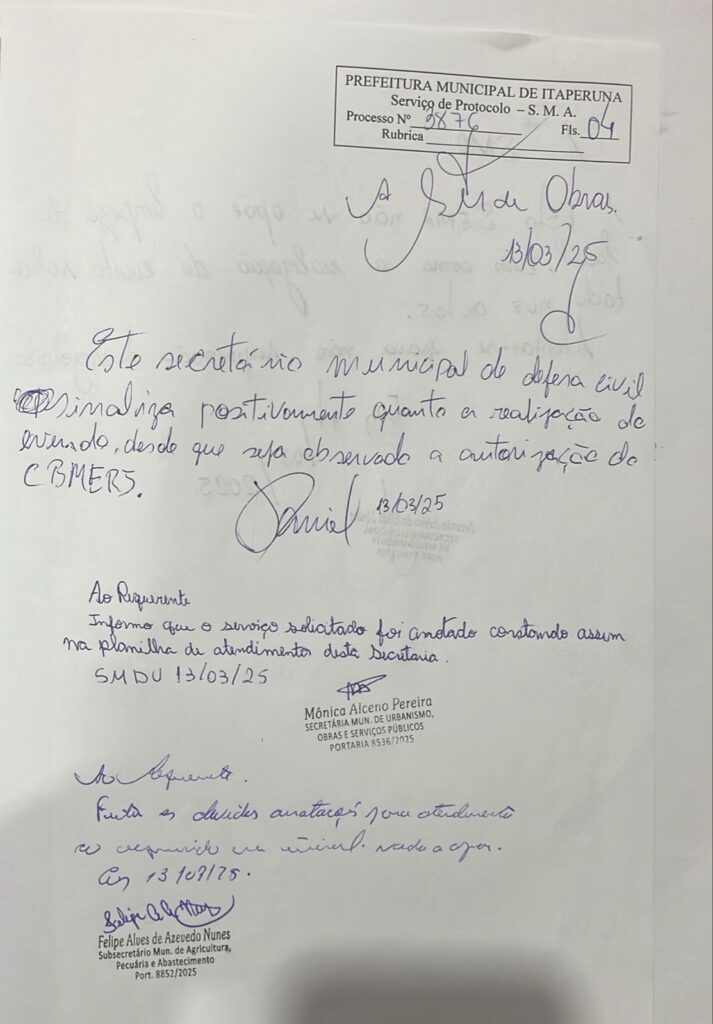 PREFEITURA MUNICIPAL DE ITAPERUNA
Serviço de Protocolo – S. M. A.
Processo Nº 3876 Fls. 04
Rubrica
A de Obras.
13/03/25
Este secretário municipal de defesa civil
sinaliza positivamente quanto a realização do
evendo, desde que seja observado a autorização do
CBMERJ.
Daniel 13/03/25
Ao Requerente
Informo que o serviço solicitado foi anotado constando assim
na planilha de atendimentos desta Secretaria.
SMDU 13/03/25
Mônica Alceno Pereira
SECRETÁRIA MUN. DE URBANISMO,
OBRAS E SERVIÇOS PÚBLICOS
PORTARIA 8536/2025
Ao Requerente.
as devidas para atendimento
ao requerido na inicial. nada a opor.
13/03/25.
Felipe Alves de Azevedo Nunes
Subsecretário Mun. de Agricultura,
Pecuária e Abastecimento
Port. 8852/2025